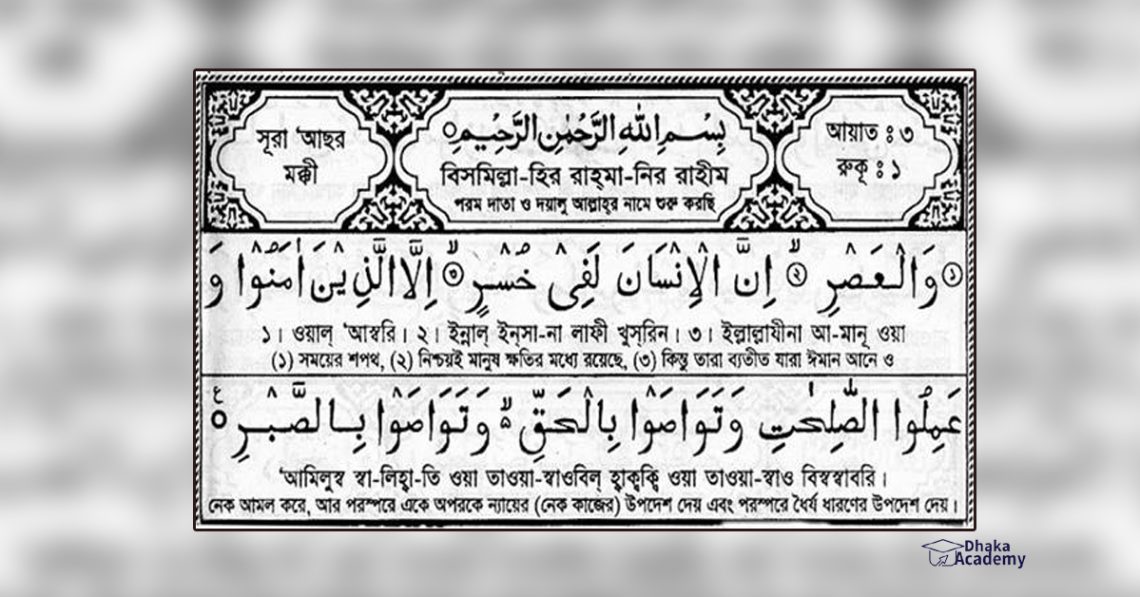 সূরা ‘আছর
মক্কী
بِسْمِ اللّٰهِ الرَّحْمٰنِ الرَّحِيْمِ
বিসমিল্লা-হির রাহ্‌মা-নির রাহীম
পরম দাতা ও দয়ালু আল্লাহ্‌র নামে শুরু করছি
আয়াত ঃ ৩
রুকূ ঃ ১
① وَالْعَصْرِ ۙ② اِنَّ الْاِنْسَانَ لَفِىْ خُسْرٍ ۙ③ اِلَّا الَّذِيْنَ اٰمَنُوْا وَ
১। ওয়াল্‌ ‘আস্বরি। ২। ইন্নাল্‌ ইন্‌সা-না লাফী খুস্‌রিন। ৩। ইল্লাল্লাযীনা আ-মানূ ওয়া
(১) সময়ের শপথ, (২) নিশ্চয়ই মানুষ ক্ষতির মধ্যে রয়েছে, (৩) কিন্তু তারা ব্যতীত যারা ঈমান আনে ও
عَمِلُوا الصّٰلِحٰتِ وَتَوَاصَوْا بِالْحَقِّ ۙ وَتَوَاصَوْا بِالصَّبْرِ
‘আমিলুস্ব স্বা-লিহা-তি ওয়া তাওয়া-স্বাওবিল্‌ হাক্‌ক্বি ওয়া তাওয়া-স্বাও বিস্বস্বাবরি।
নেক আমল করে, আর পরস্পরে একে অপরকে ন্যায়ের (নেক কাজের) উপদেশ দেয় এবং পরস্পরে ধৈর্য ধারণের উপদেশ দেয়।
Dhaka
Academy